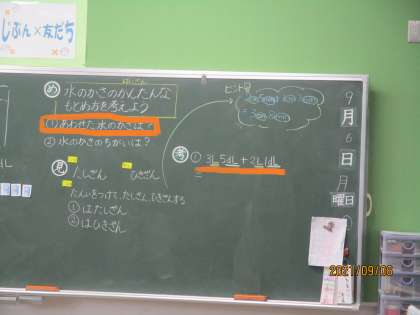 じぶん×友だち
けいさん
め 水のかさのかんたんな
もとめ方を考えよう
① あわせた水のかさは?
② 水のかさのちがいは?
見
たしざん ひきざん
たんいをつけて、たしざん、ひきざんする
① はたしざん
② はひきざん
ヒント
考 ① 3L5dL+2L1dL
=
9
月
6
日
月
曜日
2021/09/06